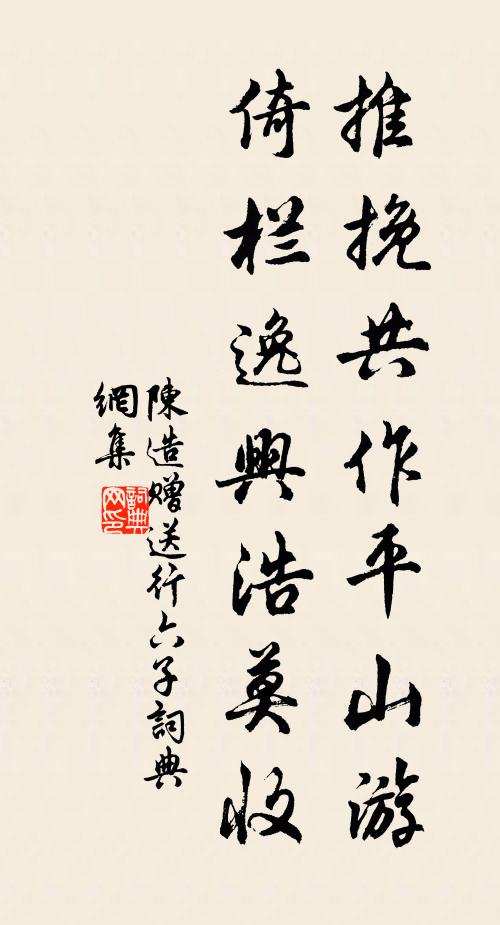 推挽共作平山游
倚栏逸興浩莫收
陳造赠送行六子詞典
網集
詞典
网印